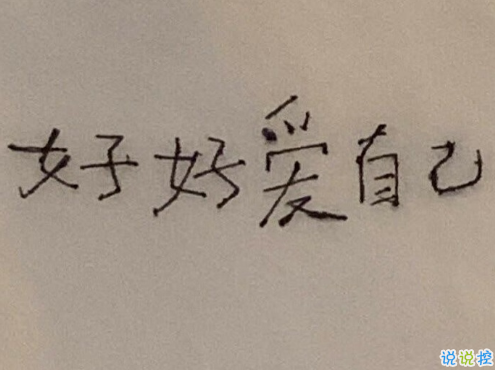 好好爱自己
说说控